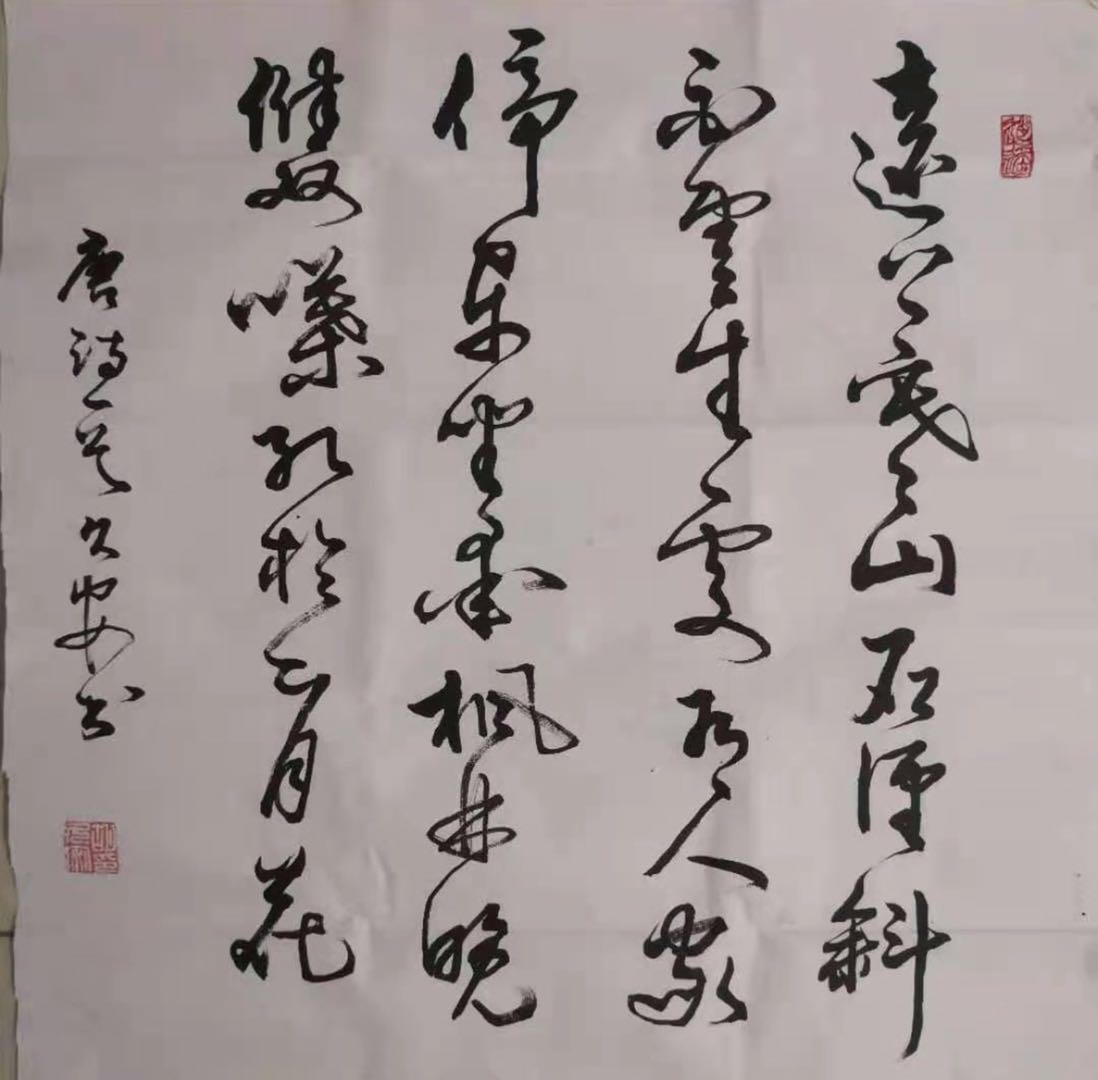 遠上寒山石徑斜
白雲生處有人家
停車坐愛楓林晚
霜葉紅於二月花
唐詩一首久安書